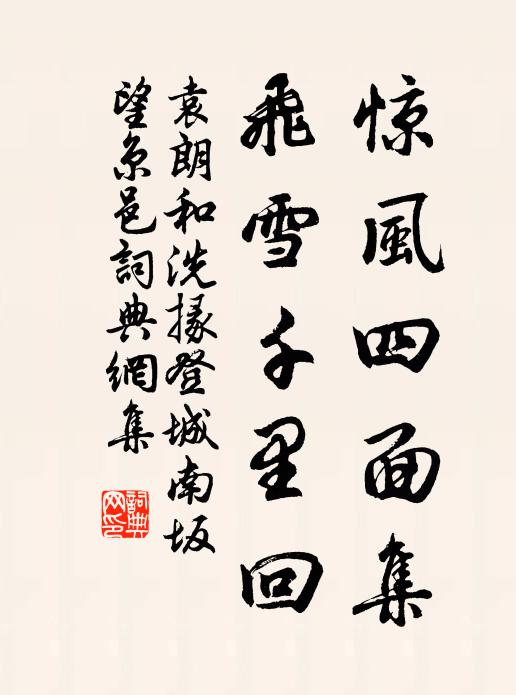 惊風四面集
飛雪千里回
袁朗和洗掾登城南坂
望京邑詞典網集
詞典
网印